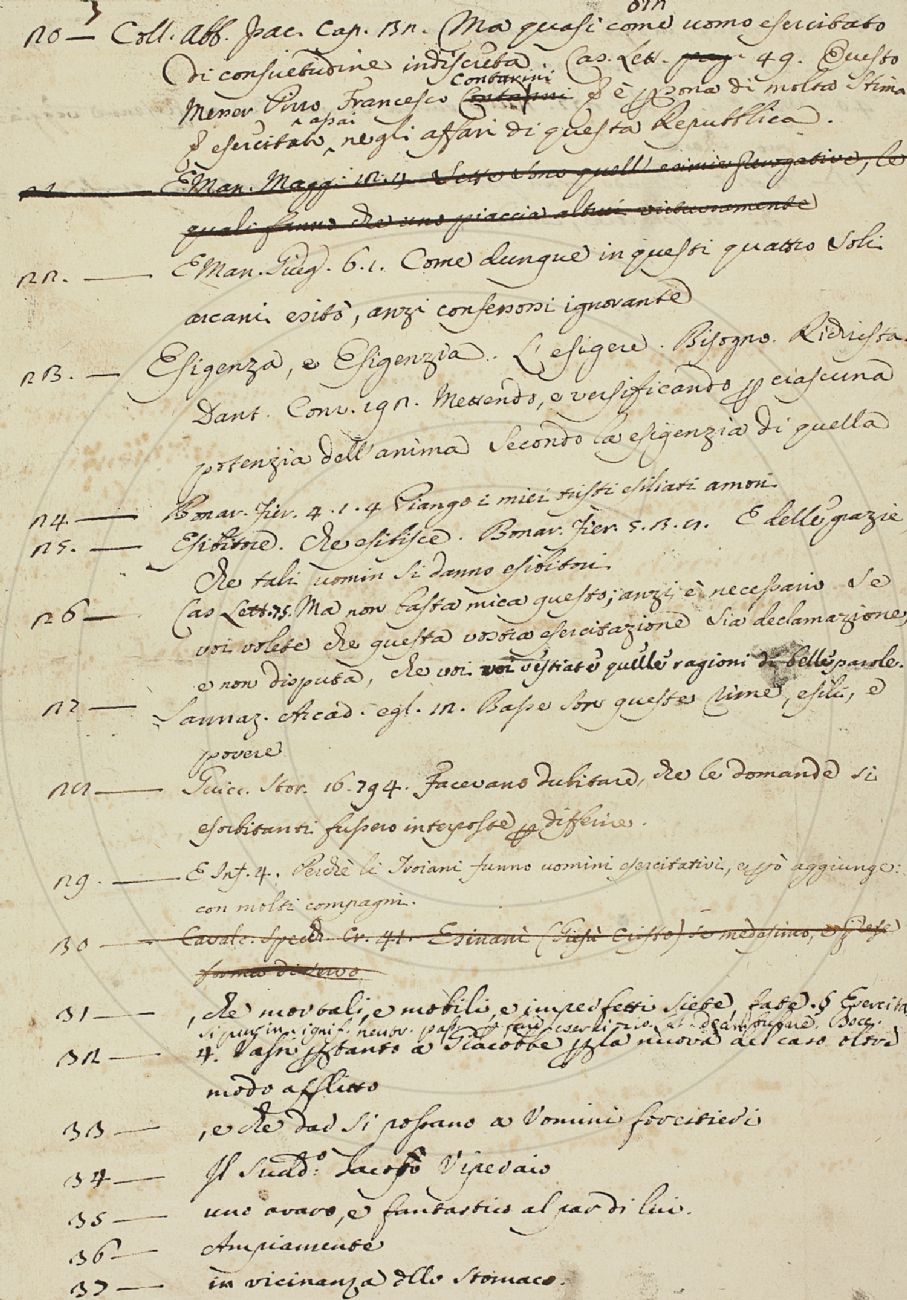 20 — Coll. Abb. Isac. Cap. 32. Ma quasi come uomo esercitato
di consuetudine indiscreta. Cas. Lett. 49. Questo
Mener Piero Francesco Contarini è psona di molta stima
esercitato assai negli affari di questa Repubblica.
21. — E Man. Magg. 12. 4. Sette sono quell' esimie prerogative, le
quali fanno che uno piaccia altrui
22. — E Man. Giug. 6. 1. Come dunque in questi quattro soli
arcani esitò, anzi confessossi ignorante
23. — Esigenza, e Esigenzia. L'esigere. Bisogno. Richiesta.
Dant. Conv. 192. Mettendo, e versificando p ciascuna
potenzia dell'anima secondo la esigenzia di quella
24 — Bonar. Fier. 4. 1. 4 Piango i miei tristi esiliati amori.
25. — Esibitore. Che esibisce. Bonar. Fier. 5. 3. 2. E delle grazie,
che tali uomin si danno esibitori.
26 — Cas Lett. 75. Ma non basta mica questo; anzi è necessario se
voi volete che questa vostra esercitazione sia declamazione,
e non disputa, che voi vestiate quelle ragioni di belle parole.
27 — Sannaz. Arcad. egl. 12. Basse son queste rime, esili, e
povere
28 — Guicc. Stor. 16. 794. Facevano dubitare, che le domande sì
esorbitanti fussero interposte p differire.
29. — E Inf. 4. Perchè li Troiani funno uomini esercitativi, e pò aggiunge:
con molti compagni.
30 — Cavalc. Specch. Cr. 41. Esinanì (Giesù Cristo) se medesimo, e prese
forma di servo
31 — , che mortali, e mobili, e imperfetti siete fate. § Esercitar
si pur in signif. neutr. pass. p fare esercizio
32 — 4. Vassi ptanto a Giacobbe p la nuova del caso oltre
modo afflitto
33 — , e che dar si possano a Uomini forestieri
34 — Il Sudd.º Jacopo Viperaio
35 — uno avaro, e fantastico al par di lui.
36 — Ampiamente
37 — in vicinanza dllo stomaco.